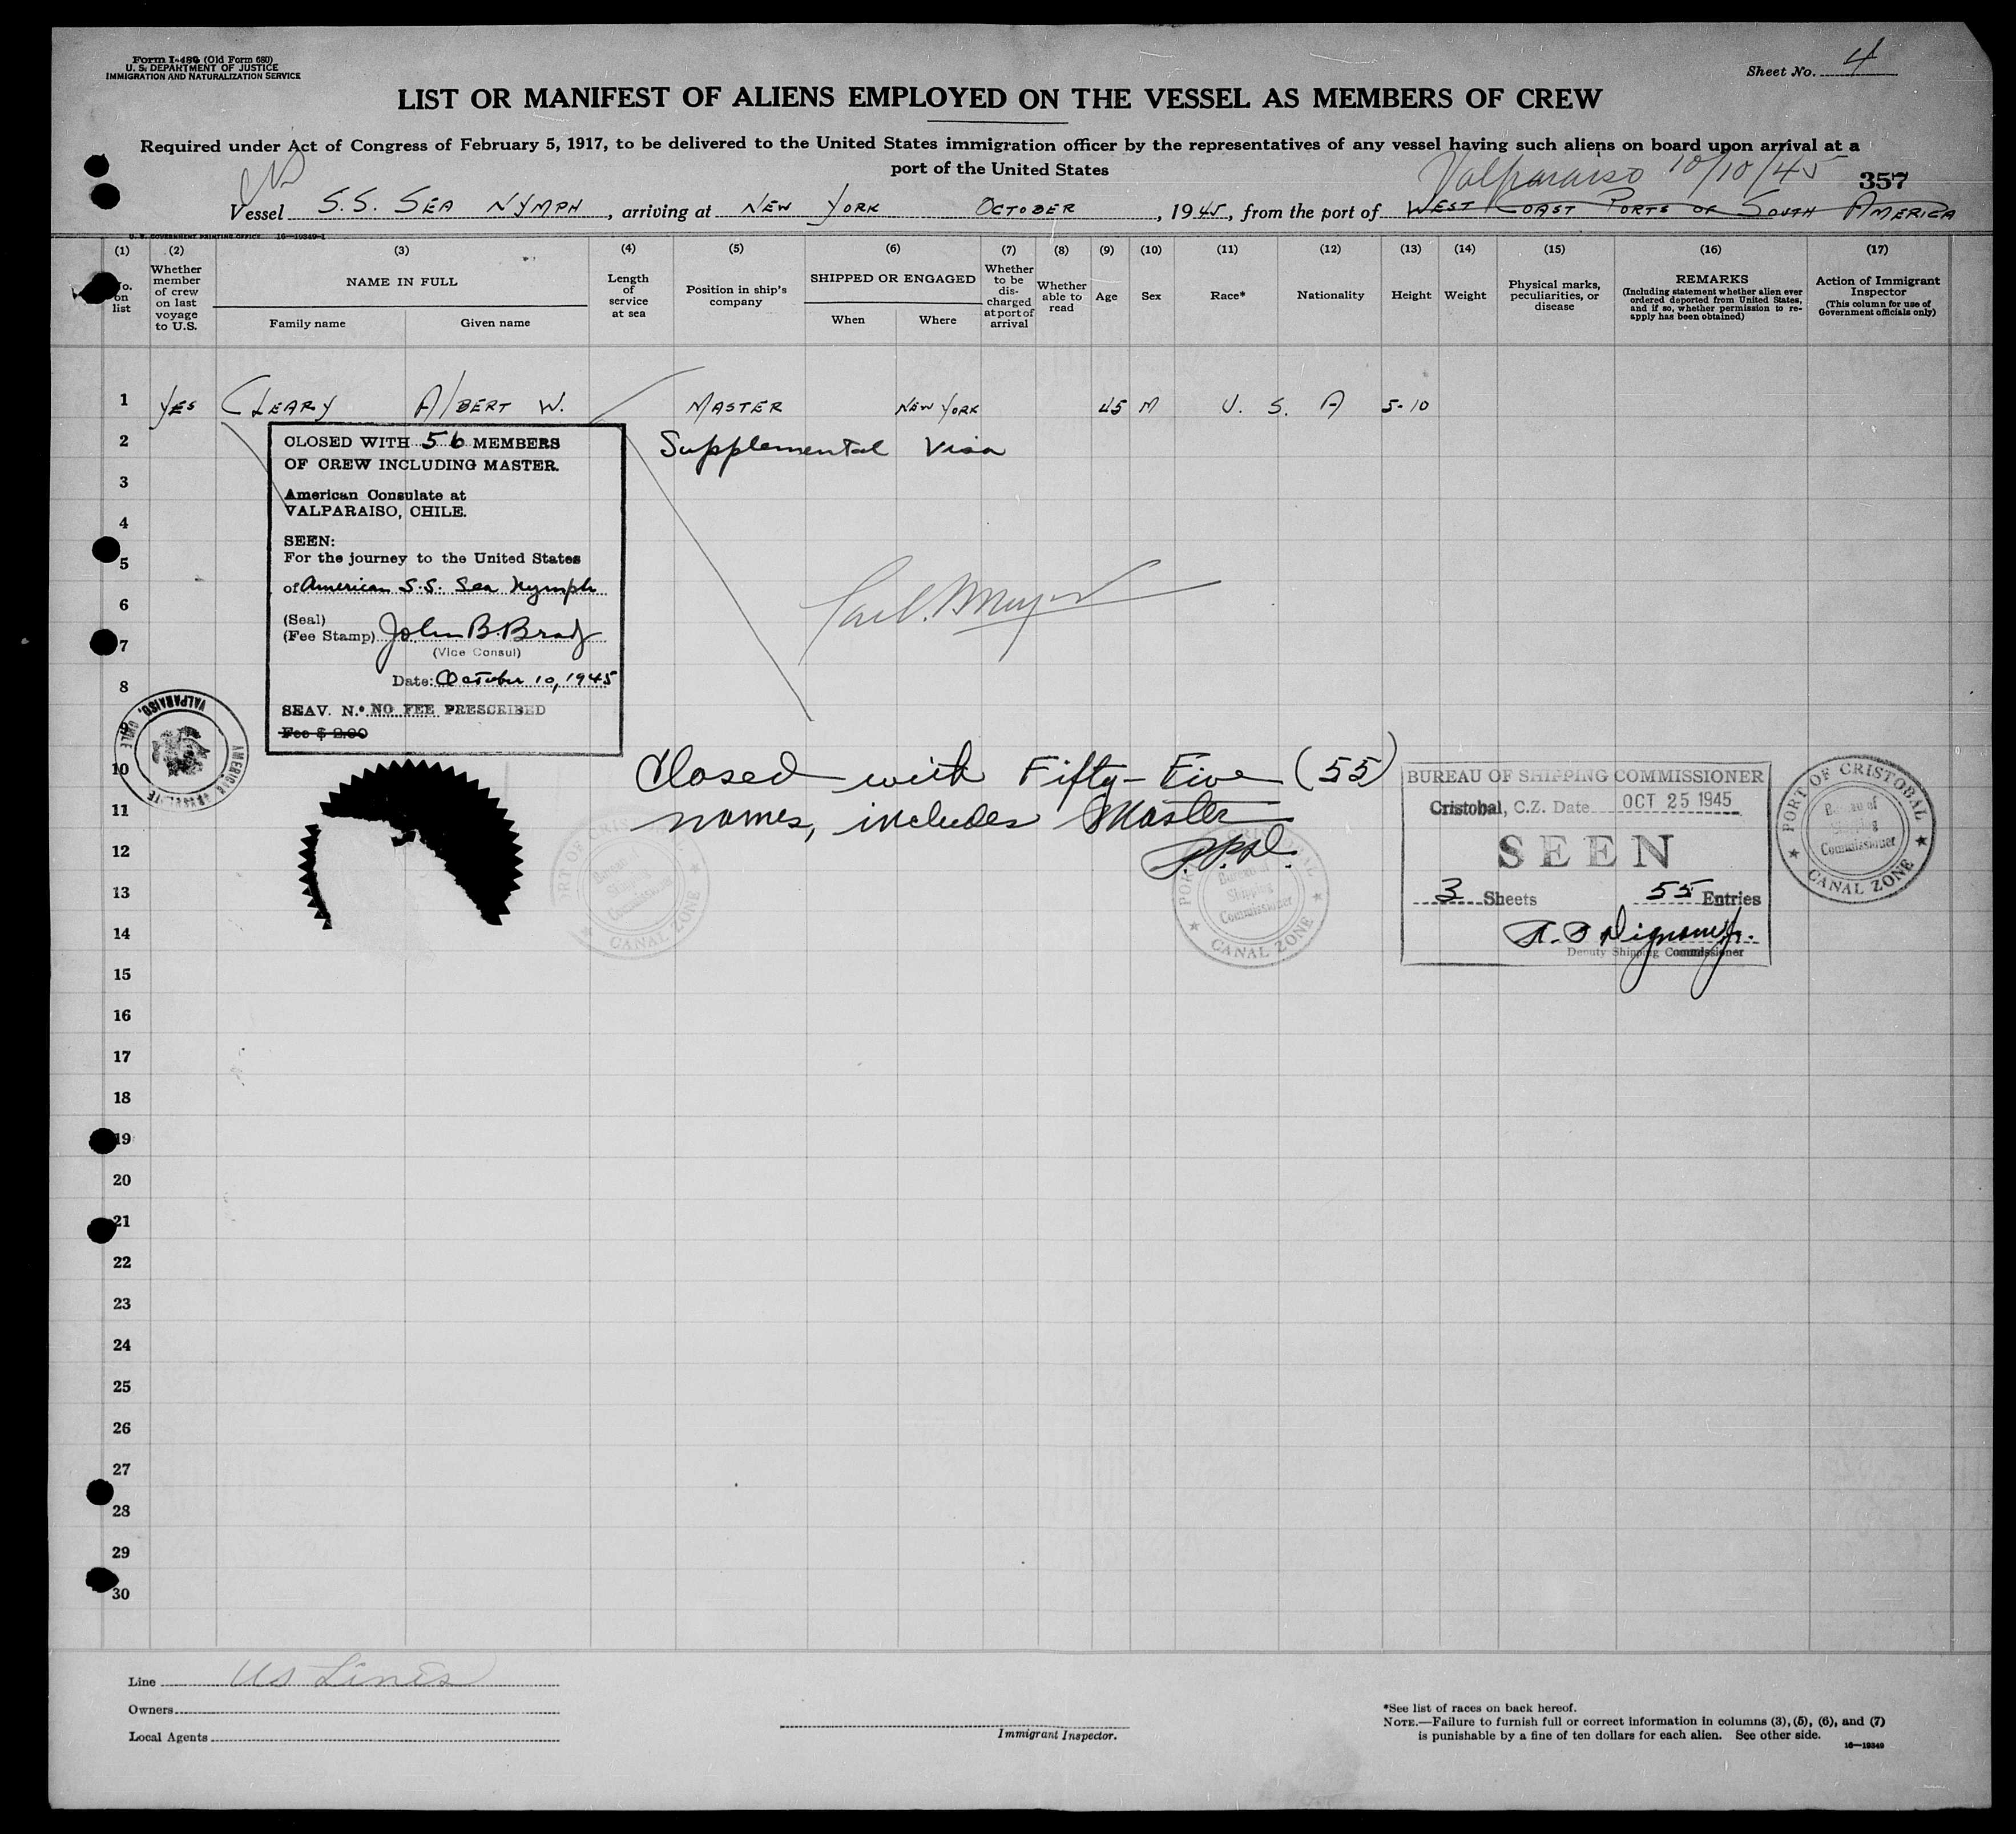 Form I-486 (Old Form 680)
U. S. DEPARTMENT OF JUSTICE
IMMIGRATION AND NATURALIZATION SERVICE
Sheet No. 4
LIST OR MANIFEST OF ALIENS EMPLOYED ON THE VESSEL AS MEMBERS OF CREW
Required under Act of Congress of February 5, 1917, to be delivered to the United States immigration officer by the representatives of any vessel having such aliens on board upon arrival at a
port of the United States
Valparaiso 10/10/45
357
Vessel S.S. SEA NYMPH, arriving at NEW YORK OCTOBER, 1945, from the port of WEST COAST PORTS OF SOUTH AMERICA
U. S. GOVERNMENT PRINTING OFFICE 16—19349-1
(1) (2) (3) (4) (5) (6) (7) (8) (9) (10) (11) (12) (13) (14) (15) (16) (17)
No. on list
Whether member of crew on last voyage to U.S.
NAME IN FULL
Family name
Given name
Length of service at sea
Position in ship's company
SHIPPED OR ENGAGED
When
Where
Whether to be dis-charged at port of arrival
Whether able to read
Age
Sex
Race*
Nationality
Height
Weight
Physical marks, peculiarities, or disease
REMARKS
(Including statement whether alien ever ordered deported from United States, and if so, whether permission to re-apply has been obtained)
Action of Immigrant Inspector
(This column for use of Government officials only)
1 YES CLEARY ALBERT W. MASTER NEW YORK 45 M U. S. A 5-10
2 Supplemental Visa
3
4
5
6
7
8
10
11
12
13
14
15
16
17
18
19
20
21
22
23
24
25
26
27
28
29
30
CLOSED WITH 56 MEMBERS
OF CREW INCLUDING MASTER.
American Consulate at
VALPARAISO, CHILE.
SEEN:
For the journey to the United States
of American S.S. Sea Nymph
(Seal)
(Fee Stamp) John B. Brady
(Vice Consul)
Date: October 10, 1945
SEAV. N.º NO FEE PRESCRIBED
Fee $ 2.00
AMERICAN CONSULATE VALPARAISO, CHILE
Closed with Fifty-Five (55)
names, includes Master
PORT OF CRISTOBAL
Bureau of
Shipping
Commissioner
CANAL ZONE
PORT OF CRISTOBAL
Bureau of
Shipping
Commissioner
CANAL ZONE
BUREAU OF SHIPPING COMMISSIONER
Cristobal, C.Z. Date OCT 25 1945
SEEN
3 Sheets 55 Entries
Deputy Shipping Commissioner
PORT OF CRISTOBAL
Bureau of
Shipping
Commissioner
CANAL ZONE
Line US Lines
Owners
Local Agents
Immigrant Inspector.
*See list of races on back hereof.
NOTE.—Failure to furnish full or correct information in columns (3), (5), (6), and (7)
is punishable by a fine of ten dollars for each alien. See other side.
16—19349